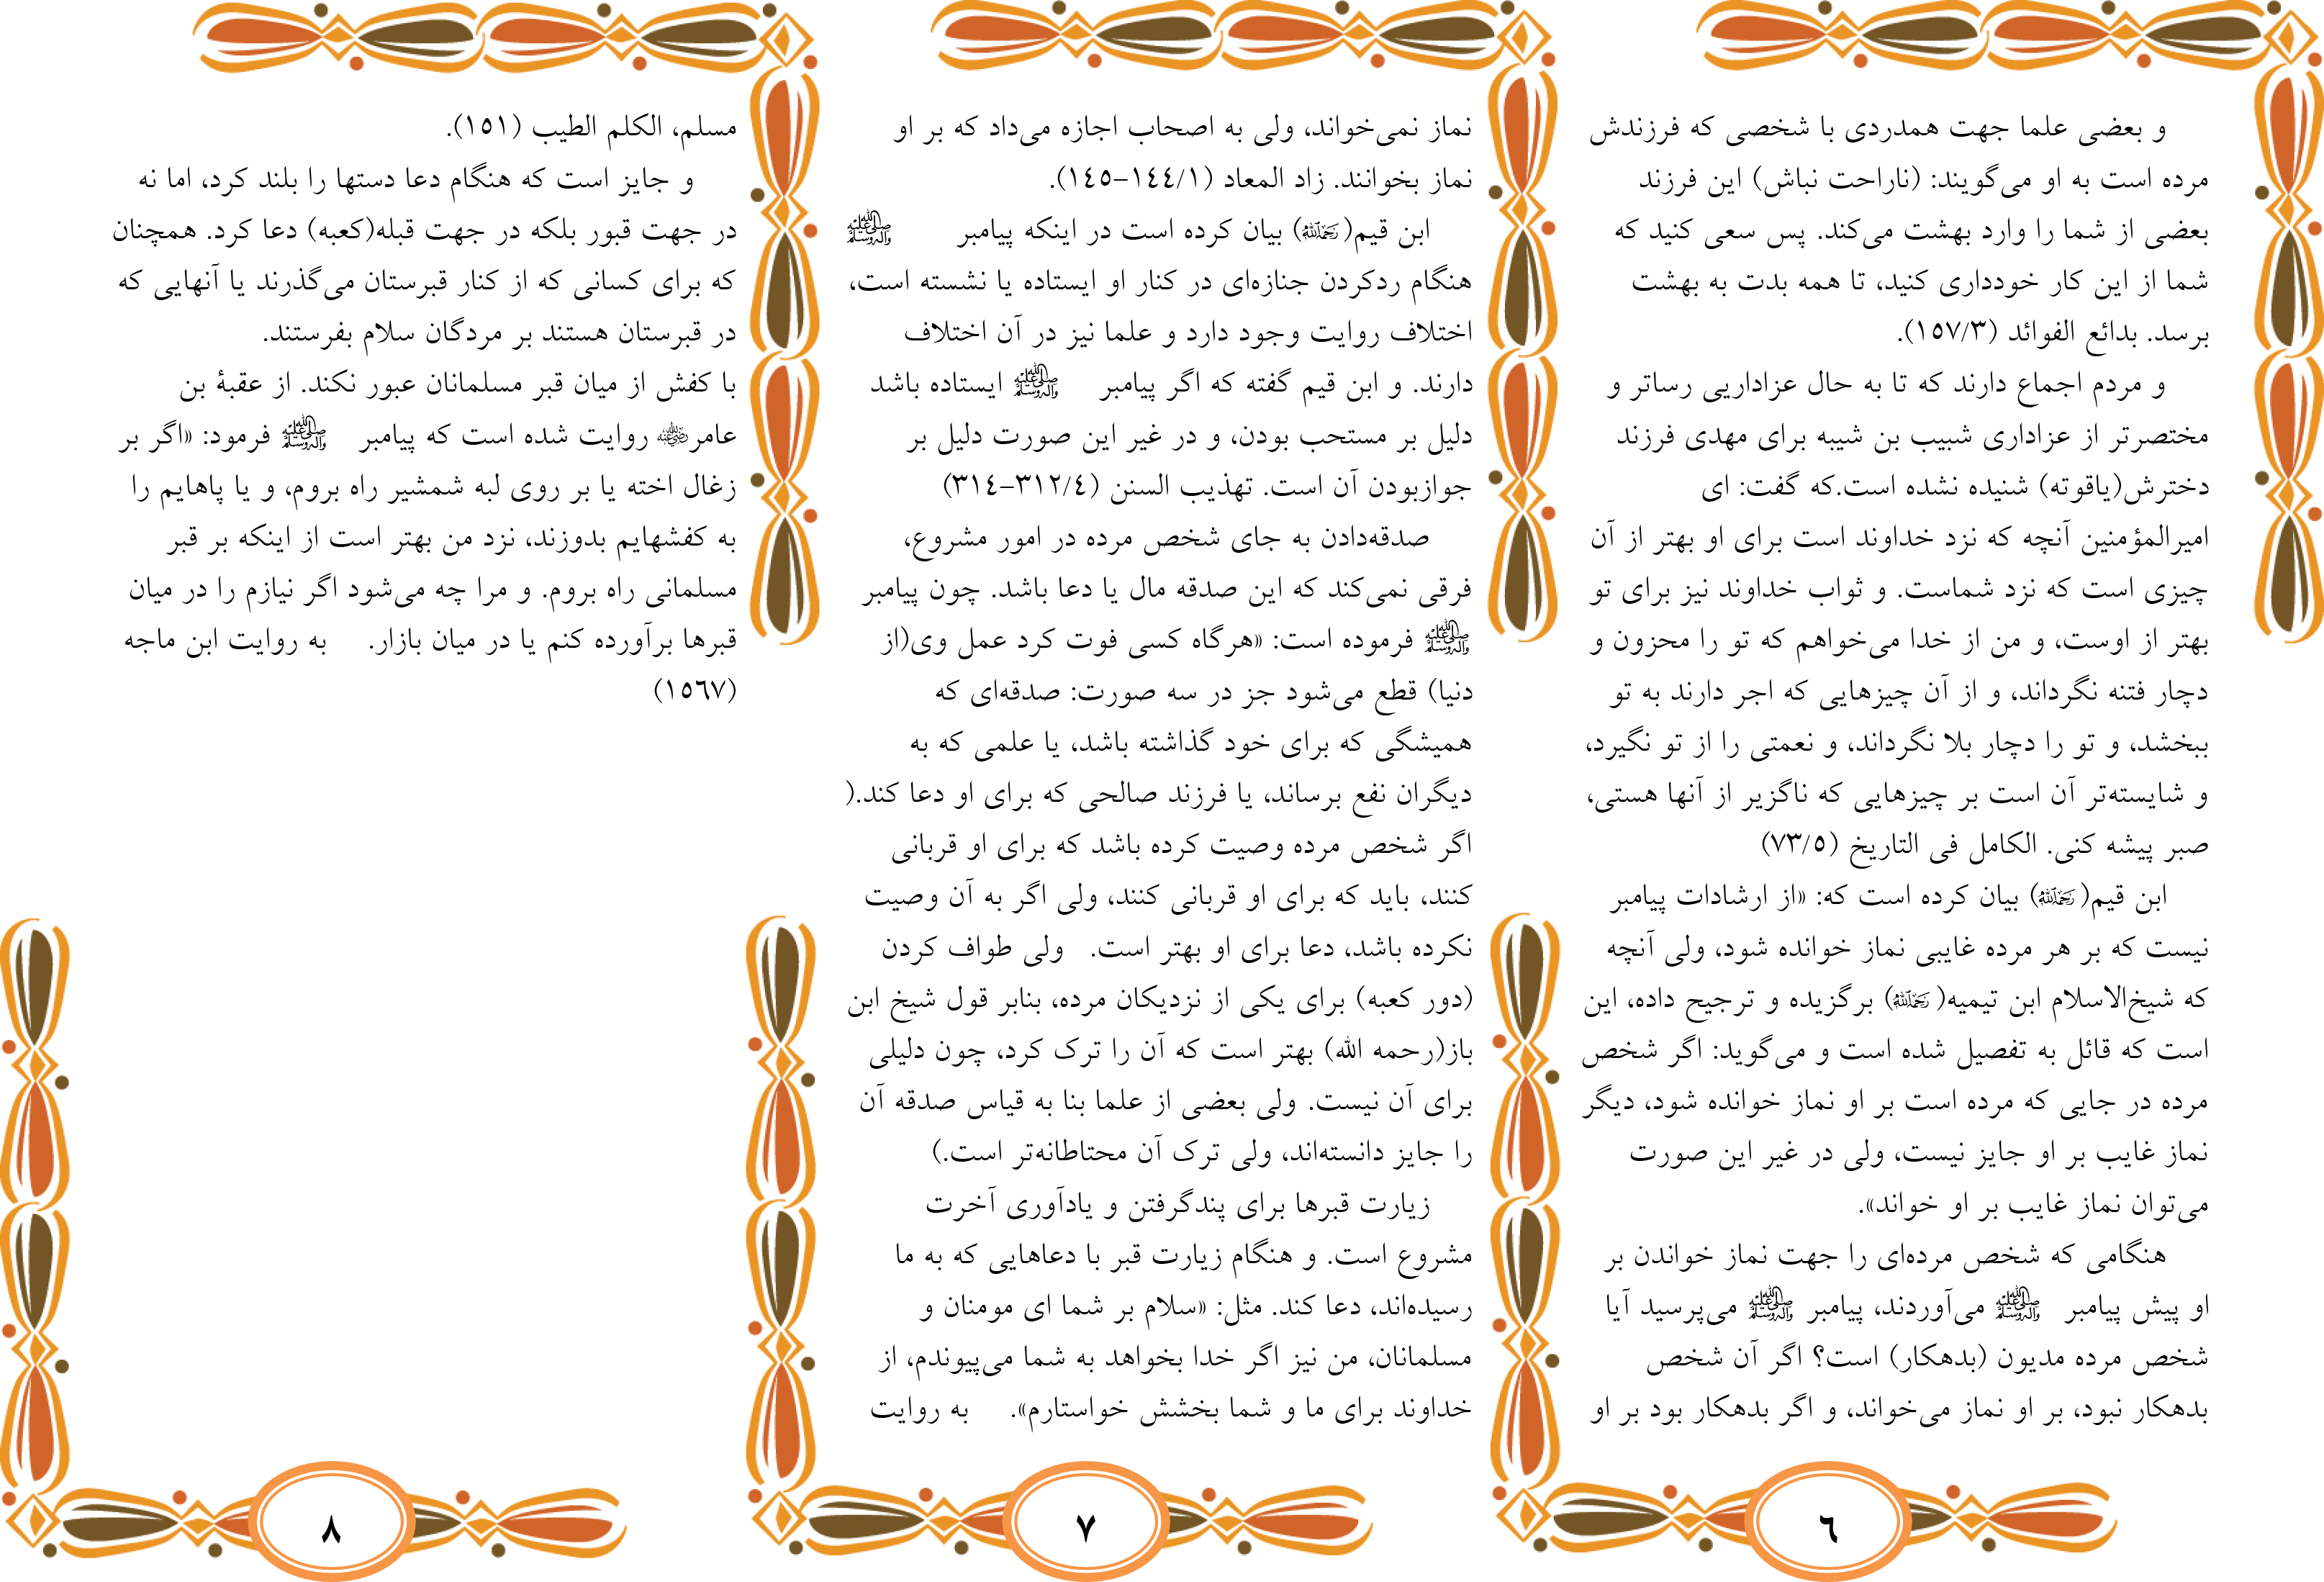 و بعضی علما جهت همدردی با شخصی که فرزندش
مرده است به او می‌گویند: (ناراحت نباش) این فرزند
بعضی از شما را وارد بهشت می‌کند. پس سعی کنید که
شما از این کار خودداری کنید، تا همه بدت به بهشت
برسد. بدائع الفوائد (١٥٧/٣).
و مردم اجماع دارند که تا به حال عزاداریی رساتر و
مختصرتر از عزاداری شبیب بن شیبه برای مهدی فرزند
دخترش(یاقوته) شنیده نشده است.که گفت: ای
امیرالمؤمنین آنچه که نزد خداوند است برای او بهتر از آن
چیزی است که نزد شماست. و ثواب خداوند نیز برای تو
بهتر از اوست، و من از خدا می‌خواهم که تو را محزون و
دچار فتنه نگرداند، و از آن چیزهایی که اجر دارند به تو
ببخشد، و تو را دچار بلا نگرداند، و نعمتی را از تو نگیرد،
و شایسته‌تر آن است بر چیزهایی که ناگزیر از آنها هستی،
صبر پیشه کنی. الکامل فی التاریخ (٧٣/٥)
ابن قیم(رحمه الله) بیان کرده است که: «از ارشادات پیامبر
نیست که بر هر مرده غایبی نماز خوانده شود، ولی آنچه
که شیخ‌الاسلام ابن تیمیه(رحمه الله) برگزیده و ترجیح داده، این
است که قائل به تفصیل شده است و می‌گوید: اگر شخص
مرده در جایی که مرده است بر او نماز خوانده شود، دیگر
نماز غایب بر او جایز نیست، ولی در غیر این صورت
می‌توان نماز غایب بر او خواند».
هنگامی که شخص مرده‌ای را جهت نماز خواندن بر
او پیش پیامبر ﷺ می‌آوردند، پیامبر ﷺ می‌پرسید آیا
شخص مرده مدیون (بدهکار) است؟ اگر آن شخص
بدهکار نبود، بر او نماز می‌خواند، و اگر بدهکار بود بر او
٦
نماز نمی‌خواند، ولی به اصحاب اجازه می‌داد که بر او
نماز بخوانند. زاد المعاد (١٤٤/١-١٤٥).
ابن قیم(رحمه الله) بیان کرده است در اینکه پیامبر ﷺ
هنگام ردکردن جنازه‌ای در کنار او ایستاده یا نشسته است،
اختلاف روایت وجود دارد و علما نیز در آن اختلاف
دارند. و ابن قیم گفته که اگر پیامبر ﷺ ایستاده باشد
دلیل بر مستحب بودن، و در غیر این صورت دلیل بر
جوازبودن آن است. تهذیب السنن (٣١٢/٤-٣١٤)
صدقه‌دادن به جای شخص مرده در امور مشروع،
فرقی نمی‌کند که این صدقه مال یا دعا باشد. چون پیامبر
ﷺ فرموده است: «هرگاه کسی فوت کرد عمل وی(از
دنیا) قطع می‌شود جز در سه صورت: صدقه‌ای که
همیشگی که برای خود گذاشته باشد، یا علمی که به
دیگران نفع برساند، یا فرزند صالحی که برای او دعا کند.(
اگر شخص مرده وصیت کرده باشد که برای او قربانی
کنند، باید که برای او قربانی کنند، ولی اگر به آن وصیت
نکرده باشد، دعا برای او بهتر است. ولی طواف کردن
(دور کعبه) برای یکی از نزدیکان مرده، بنابر قول شیخ ابن
باز(رحمه الله) بهتر است که آن را ترک کرد، چون دلیلی
برای آن نیست. ولی بعضی از علما بنا به قیاس صدقه آن
را جایز دانسته‌اند، ولی ترک آن محتاطانه‌تر است.)
زیارت قبرها برای پندگرفتن و یادآوری آخرت
مشروع است. و هنگام زیارت قبر با دعاهایی که به ما
رسیده‌اند، دعا کند. مثل: «سلام بر شما ای مومنان و
مسلمانان، من نیز اگر خدا بخواهد به شما می‌پیوندم، از
خداوند برای ما و شما بخشش خواستارم». به روایت
٧
مسلم، الکلم الطیب (١٥١).
و جایز است که هنگام دعا دستها را بلند کرد، اما نه
در جهت قبور بلکه در جهت قبله(کعبه) دعا کرد. همچنان
که برای کسانی که از کنار قبرستان می‌گذرند یا آنهایی که
در قبرستان هستند بر مردگان سلام بفرستند.
با کفش از میان قبر مسلمانان عبور نکند. از عقبۀ بن
عامررضی الله عنه روایت شده است که پیامبر ﷺ فرمود: «اگر بر
زغال اخته یا بر روی لبه شمشیر راه بروم، و یا پاهایم را
به کفشهایم بدوزند، نزد من بهتر است از اینکه بر قبر
مسلمانی راه بروم. و مرا چه می‌شود اگر نیازم را در میان
قبرها برآورده کنم یا در میان بازار. به روایت ابن ماجه
(١٥٦٧)
٨